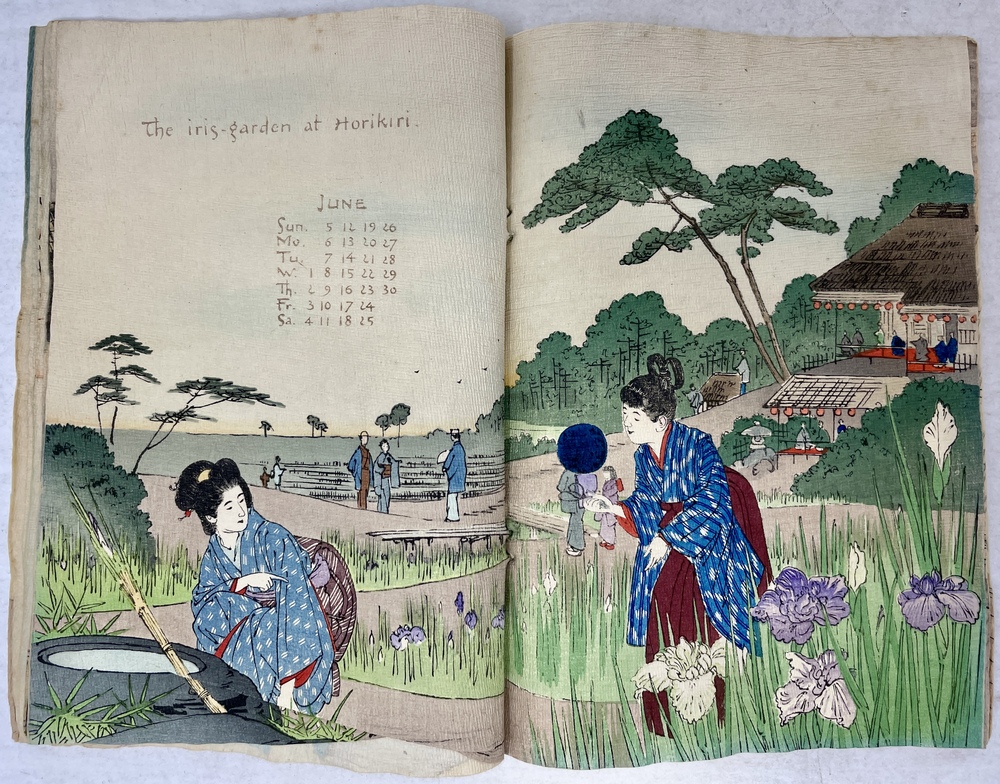 The iris-garden at Horikiri.
JUNE
Sun. 5 12 19 26
Mo. 6 13 20 27
Tu. 7 14 21 28
W. 1 8 15 22 29
Th. 2 9 16 23 30
Fr. 3 10 17 24
Sa. 4 11 18 25